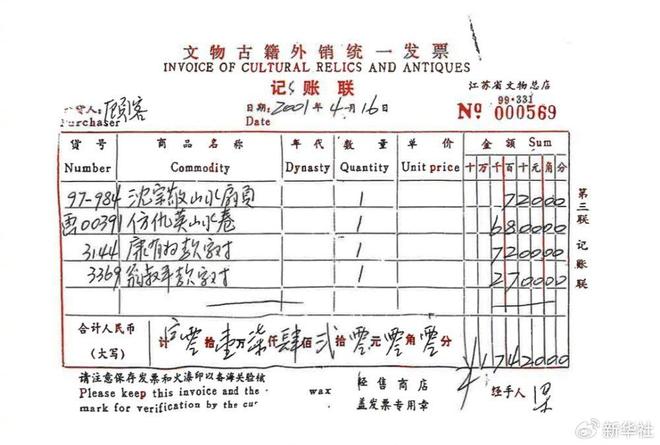 文物古籍外销统一发票
INVOICE OF CULTURAL RELICS AND ANTIQUES
记账联
江苏省文物总店
99·331
货人：顾客
Purchaser
日期：2001年4月16日
Date
№ 000569
货号 商品名称 年代 数量 单价 金额 Sum
Number Commodity Dynasty Quantity Unit price 十万千百十元角分
97-984 沈宗敬山水扇页 1 72000
画00391 仿仇英山水卷 1 680000
3144 康有为款字对 1 720000
3369 翁叔平款字对 1 270000
第三联 记账联
合计人民币（大写） 计 零拾壹万柒仟肆佰贰拾零元零角零分 ¥1742000
请注意保存发票和火漆印以备海关验核
Please keep this invoice and the wax
mark for verification by the cus
经售商店
盖发票专用章
经手人 梁
新华社